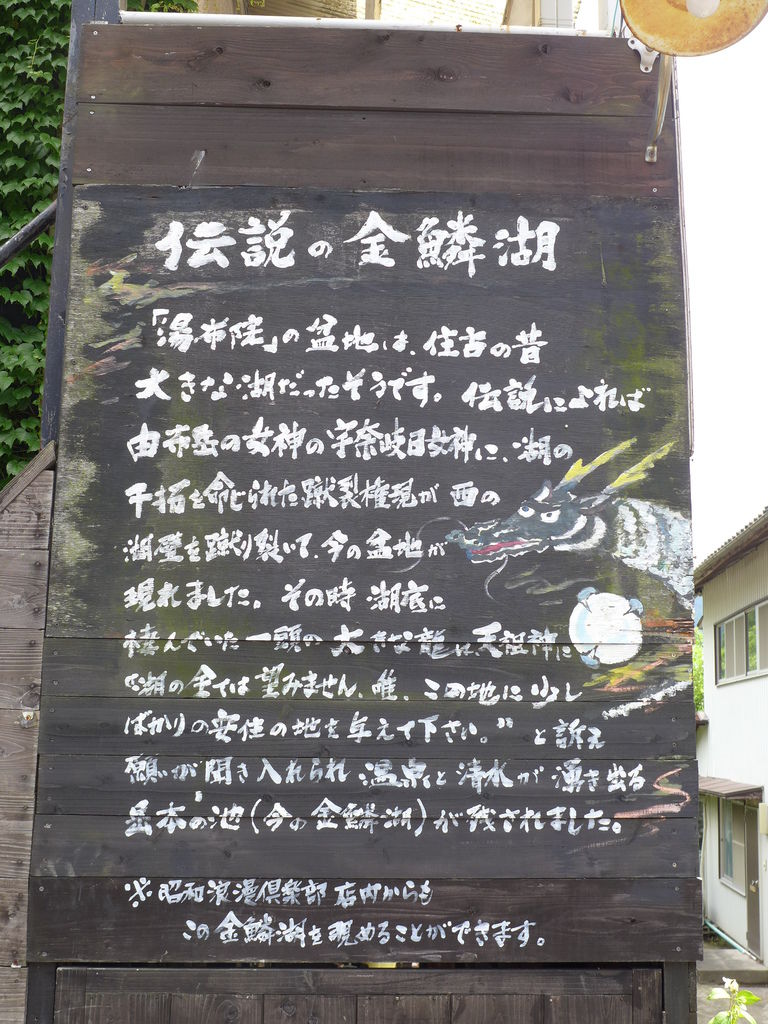 伝説の金鱗湖
「湯布院」の盆地は、住古の昔
大きな湖だったそうです。伝説によれば
由布岳の女神の宇奈岐日女神に、湖の
干拓を命じられた蹴裂権現が西の
湖壁を蹴り裂いて、今の盆地が
現れました。その時湖底に
棲んでいた一頭の大きな龍は天祖神に
〝湖の全ては望みません、唯、この地に少し
ばかりの安住の地を与えて下さい。〟と訴え
願いが聞き入れられ温泉と清水が湧き出る
岳本の池(今の金鱗湖)が残されました。
※昭和浪漫倶楽部店内からも
この金鱗湖を眺めることができます。